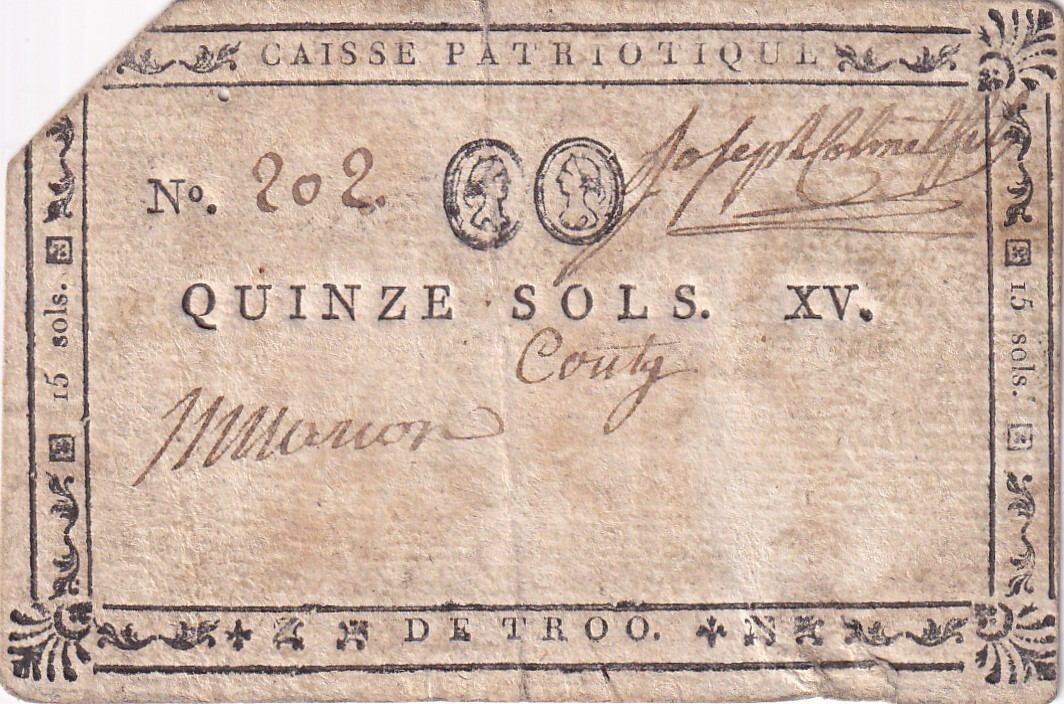 CAISSE PATRIOTIQUE
No. 202.
Joseph
QUINZE SOLS. XV.
Couty
15 sols.
15 sols.
DE TROO.